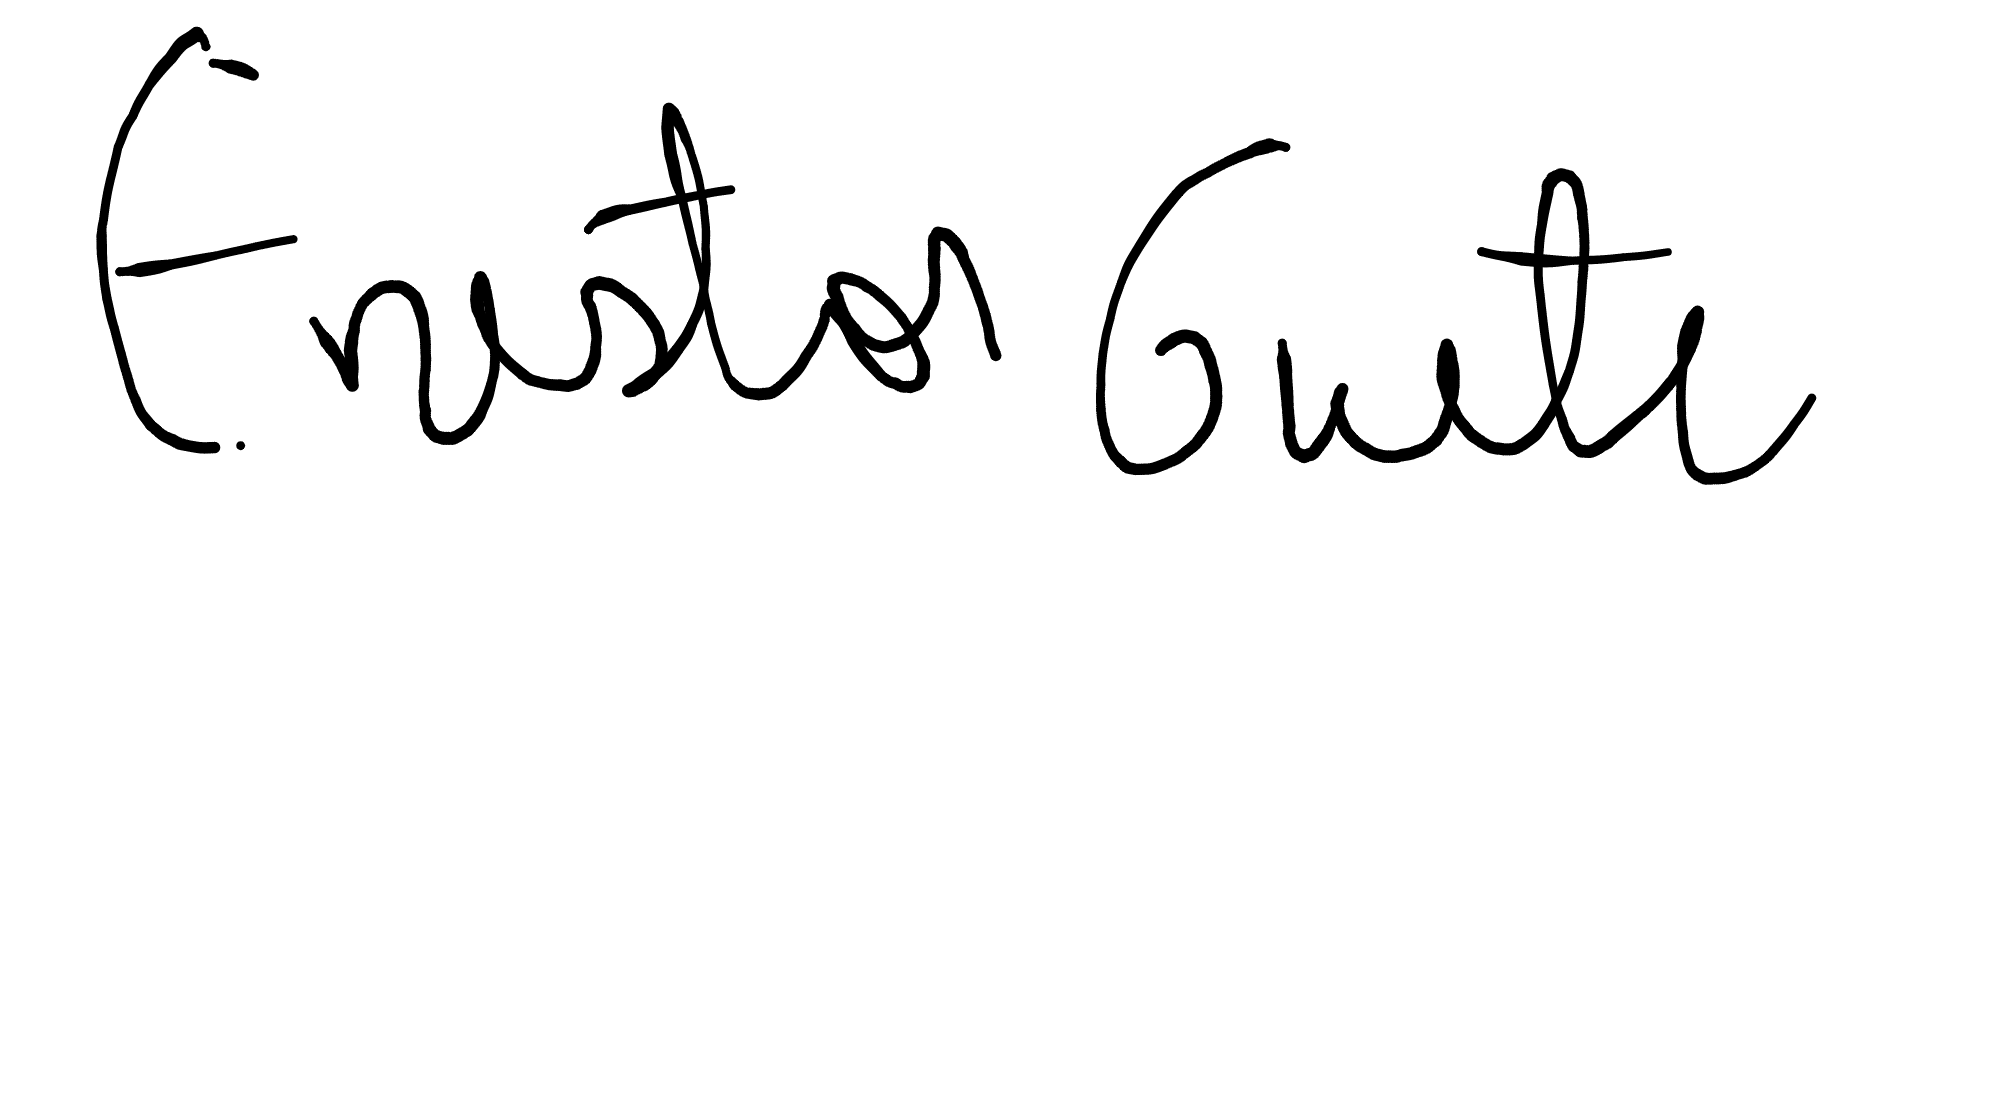 Enestor Guete